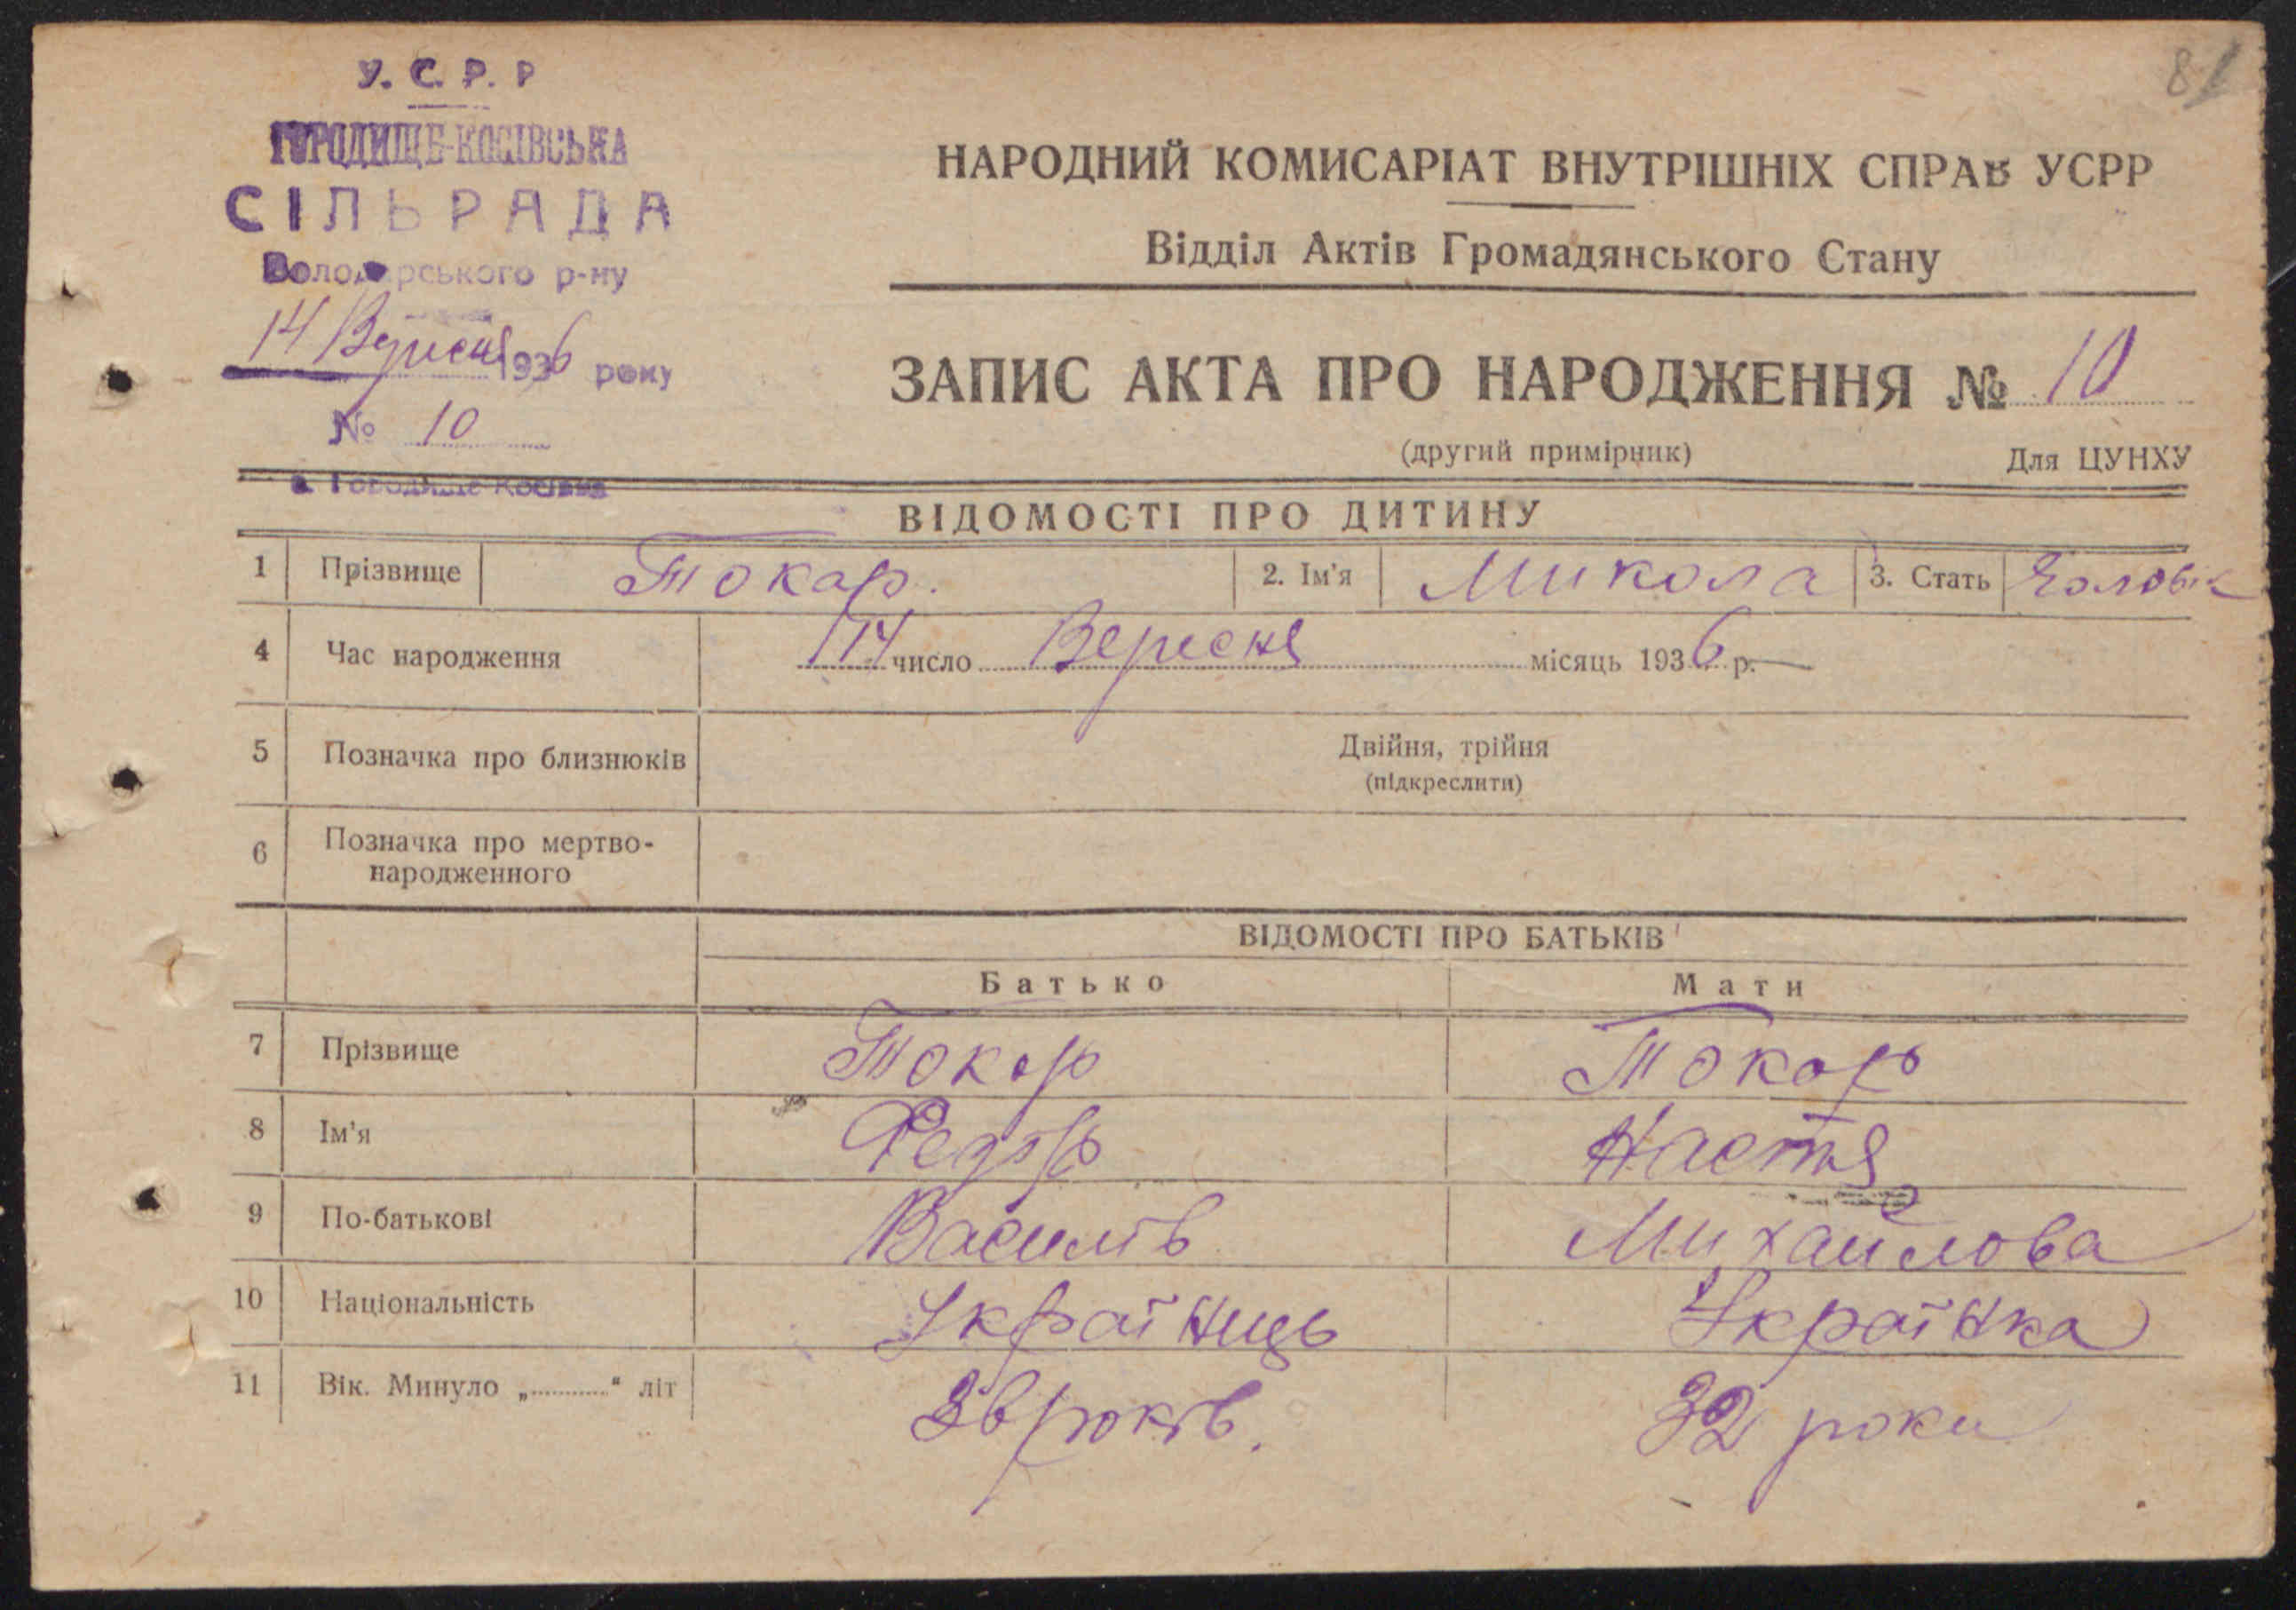 81
У. С. Р. Р
ГОРОДИЩЕ-КОСІВСЬКА
СІЛЬРАДА
Володарського р-ну
14 Вересня 1936 року
№ 10
НАРОДНИЙ КОМИСАРІАТ ВНУТРІШНІХ СПРАВ УСРР
Відділ Актів Громадянського Стану
ЗАПИС АКТА ПРО НАРОДЖЕННЯ № 10
(другий примірник) Для ЦУНХУ
с. Городище-Косівка
ВІДОМОСТІ ПРО ДИТИНУ
1 Прізвище Токар. 2. Ім'я Микола 3. Стать Чоловік
4 Час народження 14 число Вересня місяць 1936 р.
5 Позначка про близнюків Двійня, трійня
(підкреслити)
6 Позначка про мертво-
народженного
ВІДОМОСТІ ПРО БАТЬКІВ
Батько Мати
7 Прізвище Токар Токар
8 Ім'я Федор Настя
9 По-батькові Василів Михайлова
10 Національність Українець Українка
11 Вік. Минуло „............“ літ років. 32 роки